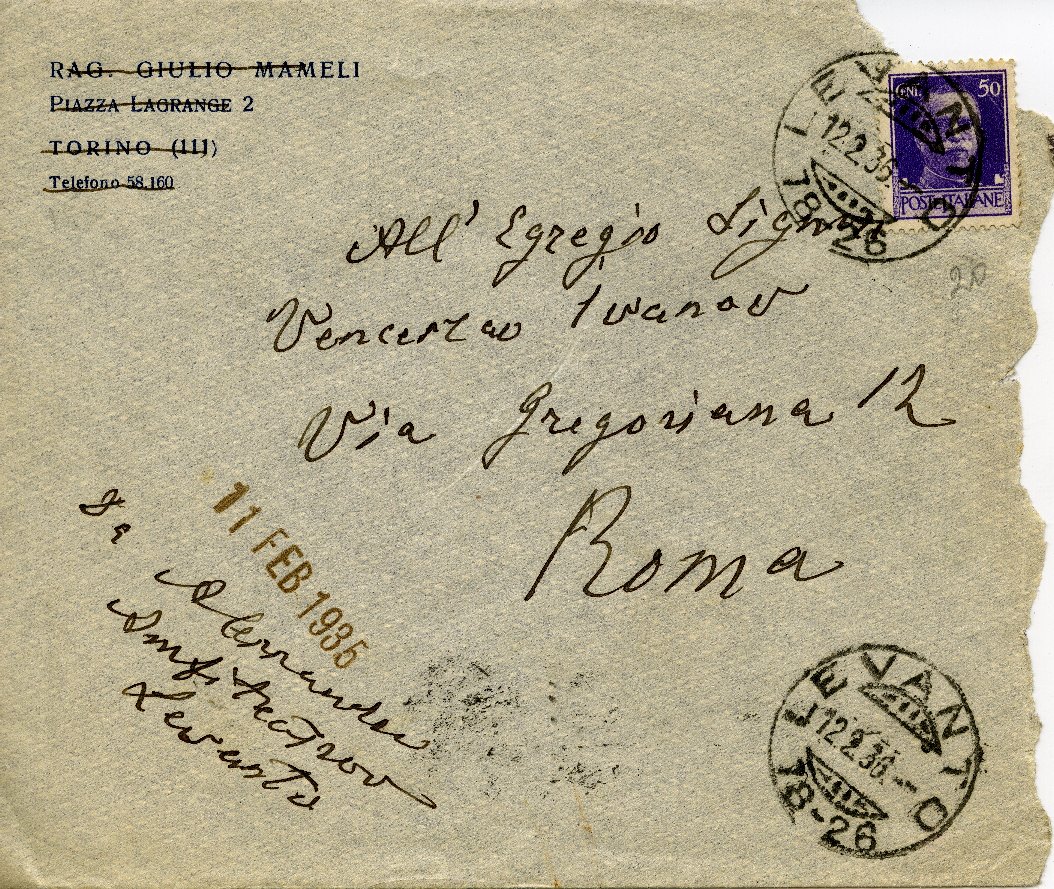 RAG. GIULIO MAMELI
PIAZZA LAGRANGE 2
TORINO (111)
Telefono 58.160
CENT. 50
POSTE ITALIANE
LEVANTO
12.2.36.
18-26
20
All' Egregio Signor
Venceslao Ivanov
Via Gregoriana 12
Roma
11 FEB 1935
Da
Alessandro
Amfiteatrov
Levanto
LEVANTO
12.2.36.
18-26